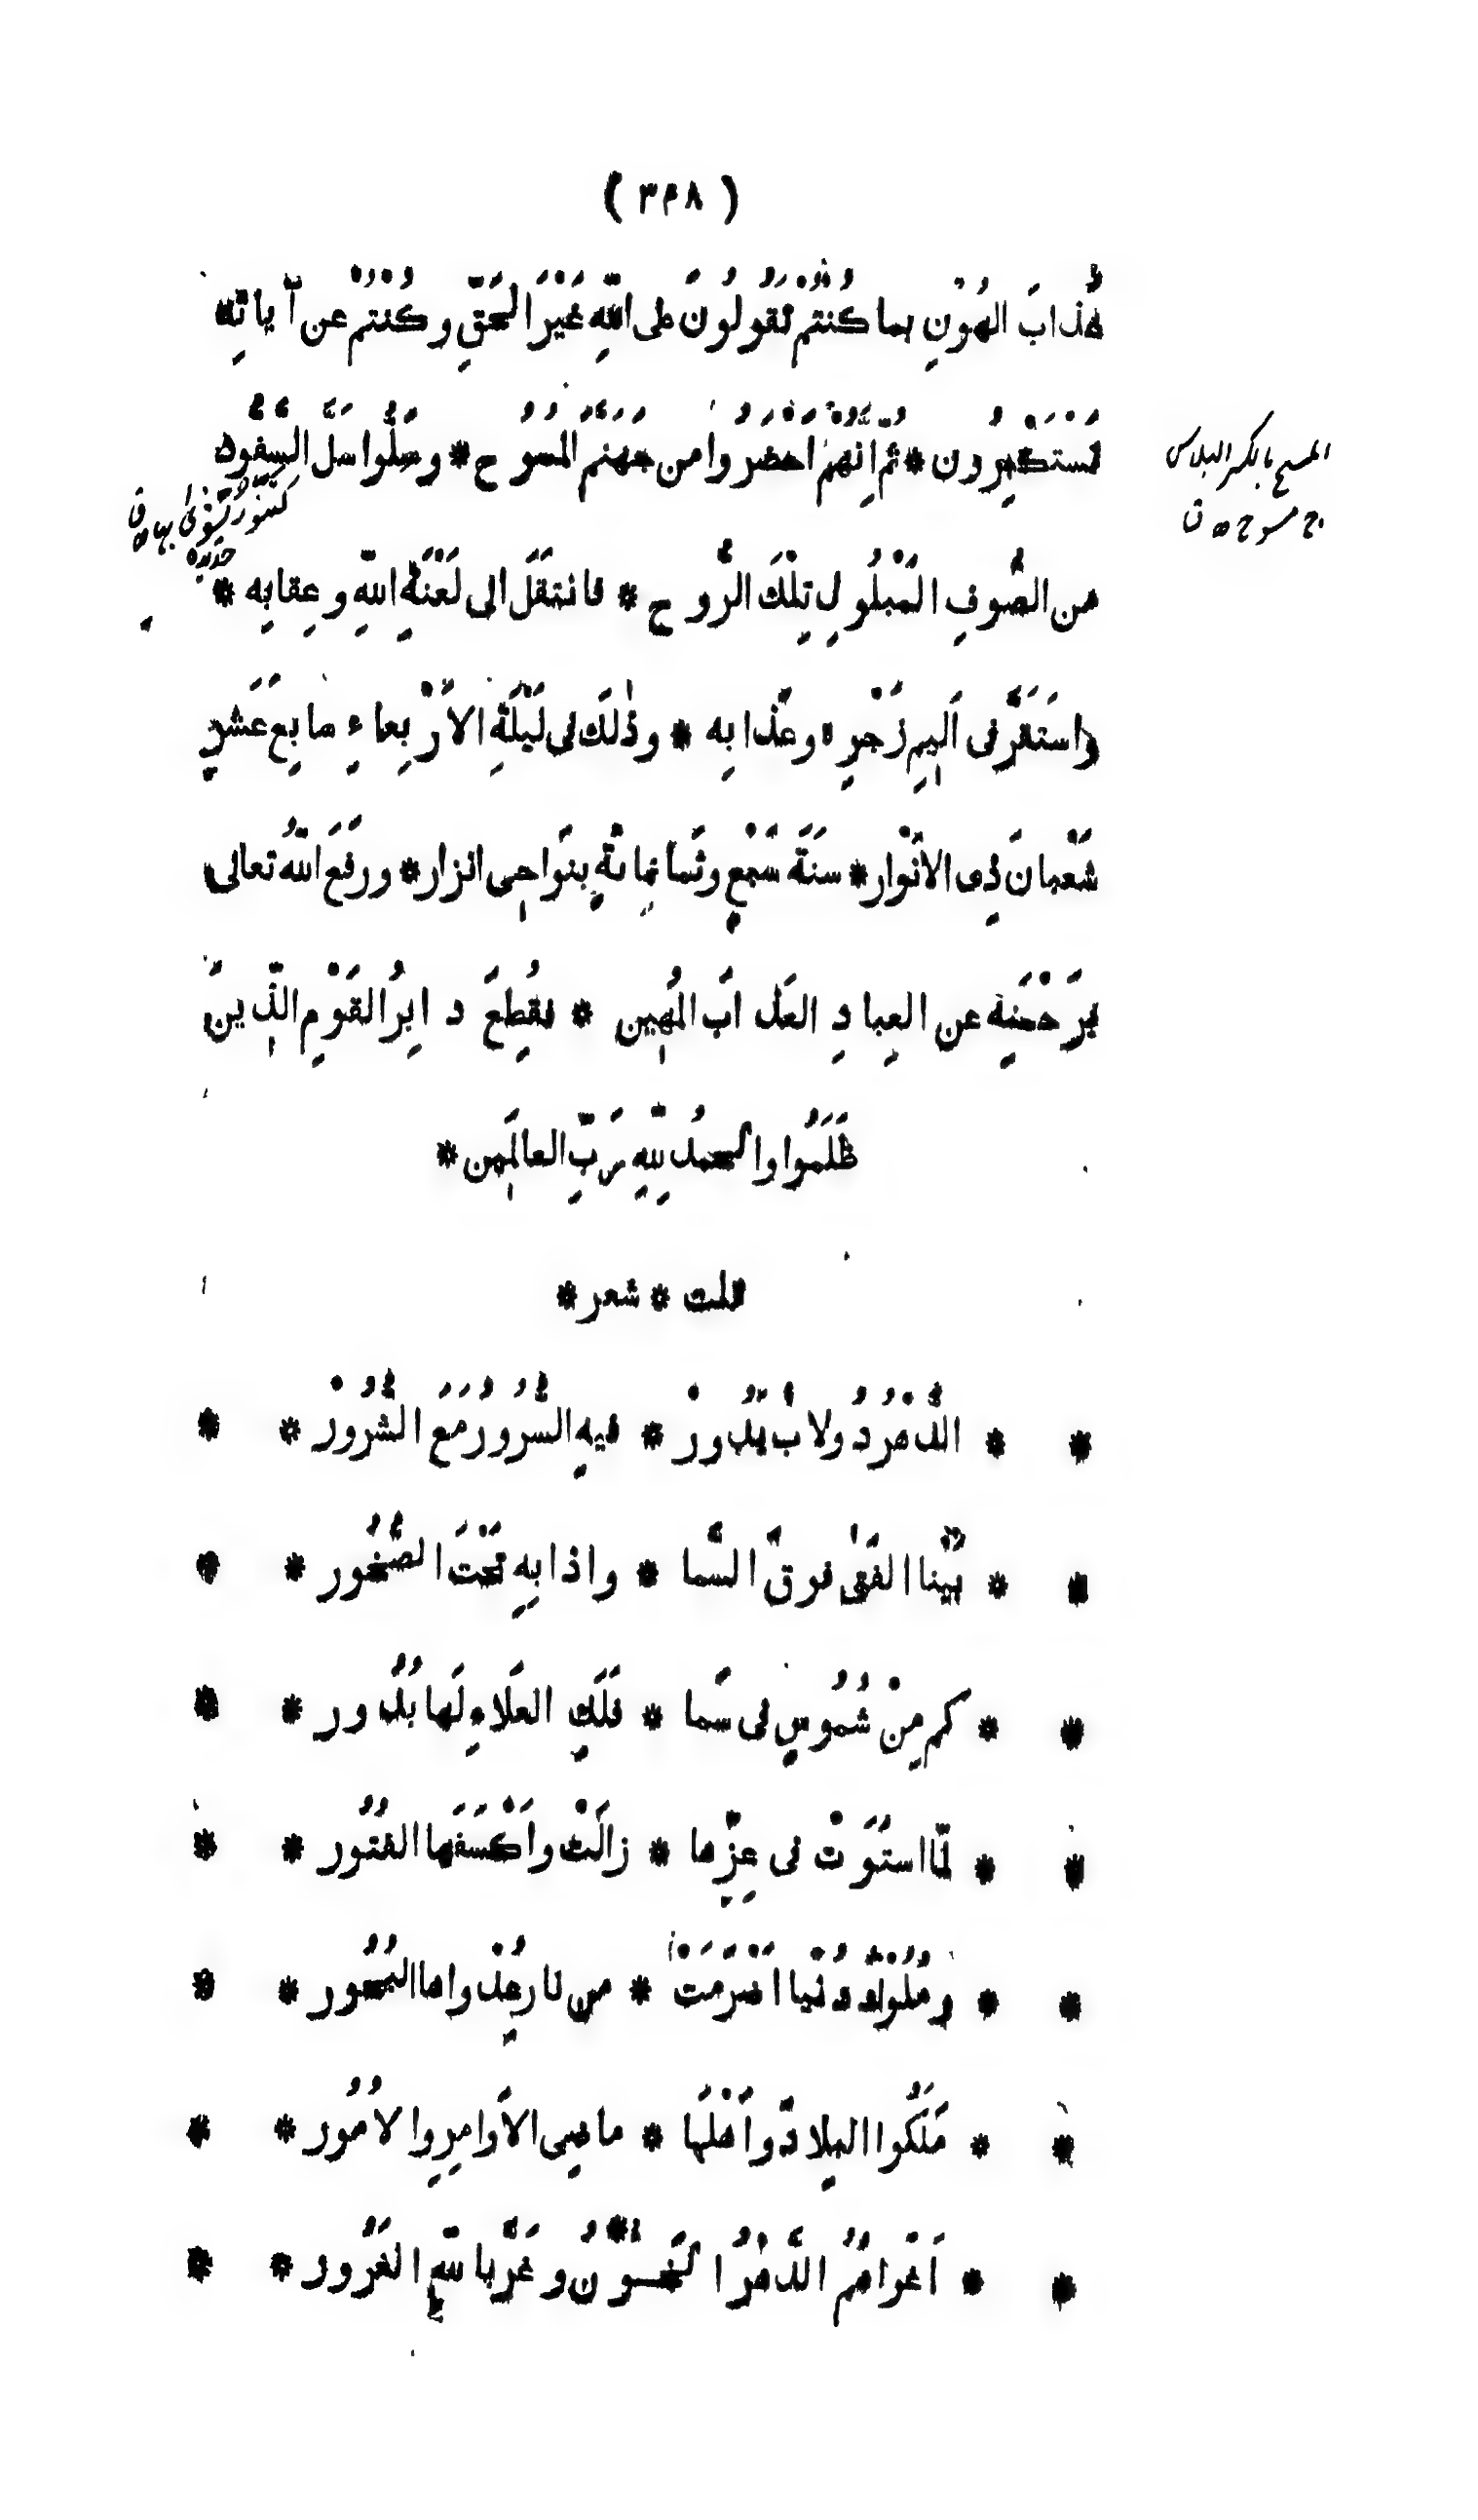 ( ٣٦٨ )
عَذابَ الهُوْنِ بما كُنْتُمْ تَقُولُونَ على اللهِ غَيْرَ الحَقِّ وكُنْتُمْ عن آياتِه
تَسْتَكْبِرُون * ثُمّ اِنَّهُمْ اَحْضَرُوا من جَهَنَّمَ المُسُوْح * وسَلُّوا سَلَّ السَّفُّود
المسح بالكسر البلاس
ج مسوح ق
كتنور
حديدة
من الصُّوفِ المَبْلُولِ تِلْكَ الرُّوح * فانتَقَلَ الى لَعْنَةِ اللهِ وعِقابِه *
واستَقَرَّ فى اَلِيمِ زَجْرِه وعَذابِه * وذٰلكَ فى لَيْلَةِ الاَرْبِعاءِ سابِعَ عَشَرِ
شَعْبانَ ذِى الاَنْوار * سنَةَ سَبْعٍ وثَمانِمائةٍ بِنَواحِى اترار * ورَفَعَ اللهُ تعالى
بِرَحْمَتِه عن العِبادِ العَذابَ المُهِين * فقُطِعَ دابِرُ القَوْمِ الّذِينَ
ظَلَمُوا والحمدُ للهِ رَبِّ العالَمِين *
قلت * شعر *
* * الدَّهْرُ دُولابٌ يَدُورْ * فيهِ السُّرُورُ مَعَ الشُّرُورْ * *
* * بَيْنا الفَتٰى فوقَ السَّما * واذا بِهِ تَحْتَ الصُّخُور * *
* * كم مِنْ شُمُوسٍ فى سَما * فَلَكِ العَلاءِ لَها بُدُور * *
* * لمّا استَوَتْ فى عِزِّها * زالَتْ واَكْسَفَها الفُتُور * *
* * ومُلُوْكُ دُنْيا اَضْرَمَتْ * من نارِهِمْ واما البُحُور * *
* * مَلَكُوا البِلادَ واَهْلَها * ماضِى الاَوامِرِ والاُمُور * *
* * اَغْراهُمُ الدَّهْرُ الخَؤُوْنُ وغَرَّ باللهِ الغَرُور * *